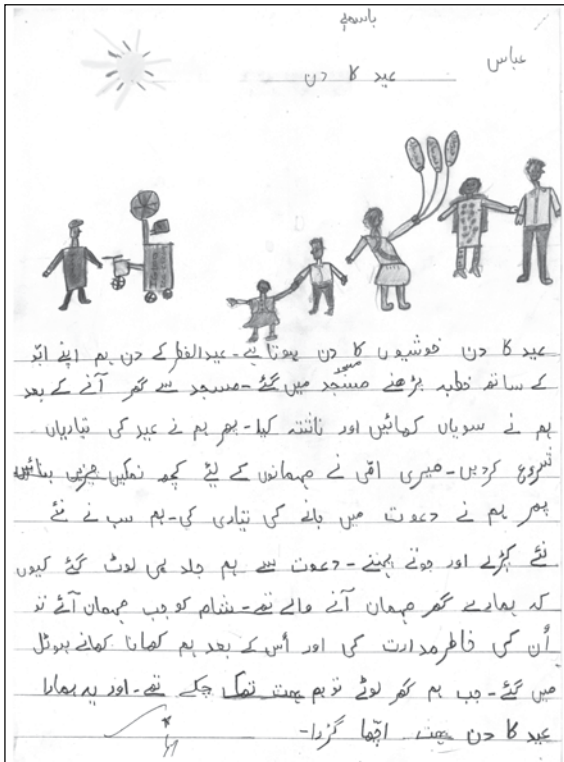 باسمہٖ
عباس
عید کا دن
عید کا دن خوشیوں کا دن ہوتا ہے۔ عیدالفطر کے دن ہم اپنے ابّو
کے ساتھ خطبہ پڑھنے مسجد مسجد میں گئے۔ مسجد سے گھر آنے کے بعد
ہم نے سویاں کھائیں اور ناشتہ کیا۔ پھر ہم نے عید کی تیاریاں
شروع کردیں۔ میری امّی نے مہمانوں کے لیٔے کچھ نمکین چیزیں بنائیں
پھر ہم نے دعوت میں جانے کی تیاری کی۔ ہم سب نے نئے
نئے کپڑے اور جوتے پہنے۔ دعوت سے ہم جلد ہی لوٹ گئے کیوں
کہ ہمارے گھر مہمان آنے والے تھے۔ شام کو جب مہمان آئے تو
اُن کی خاطرمدارت کی اور اُس کے بعد ہم کھانا کھانے ہوٹل
میں گئے۔ جب ہم گھر لوٹے تو ہم بہت تھک چکے تھے۔ اور یہ ہمارا
عید کا دن بہت اچّھا گزرا۔